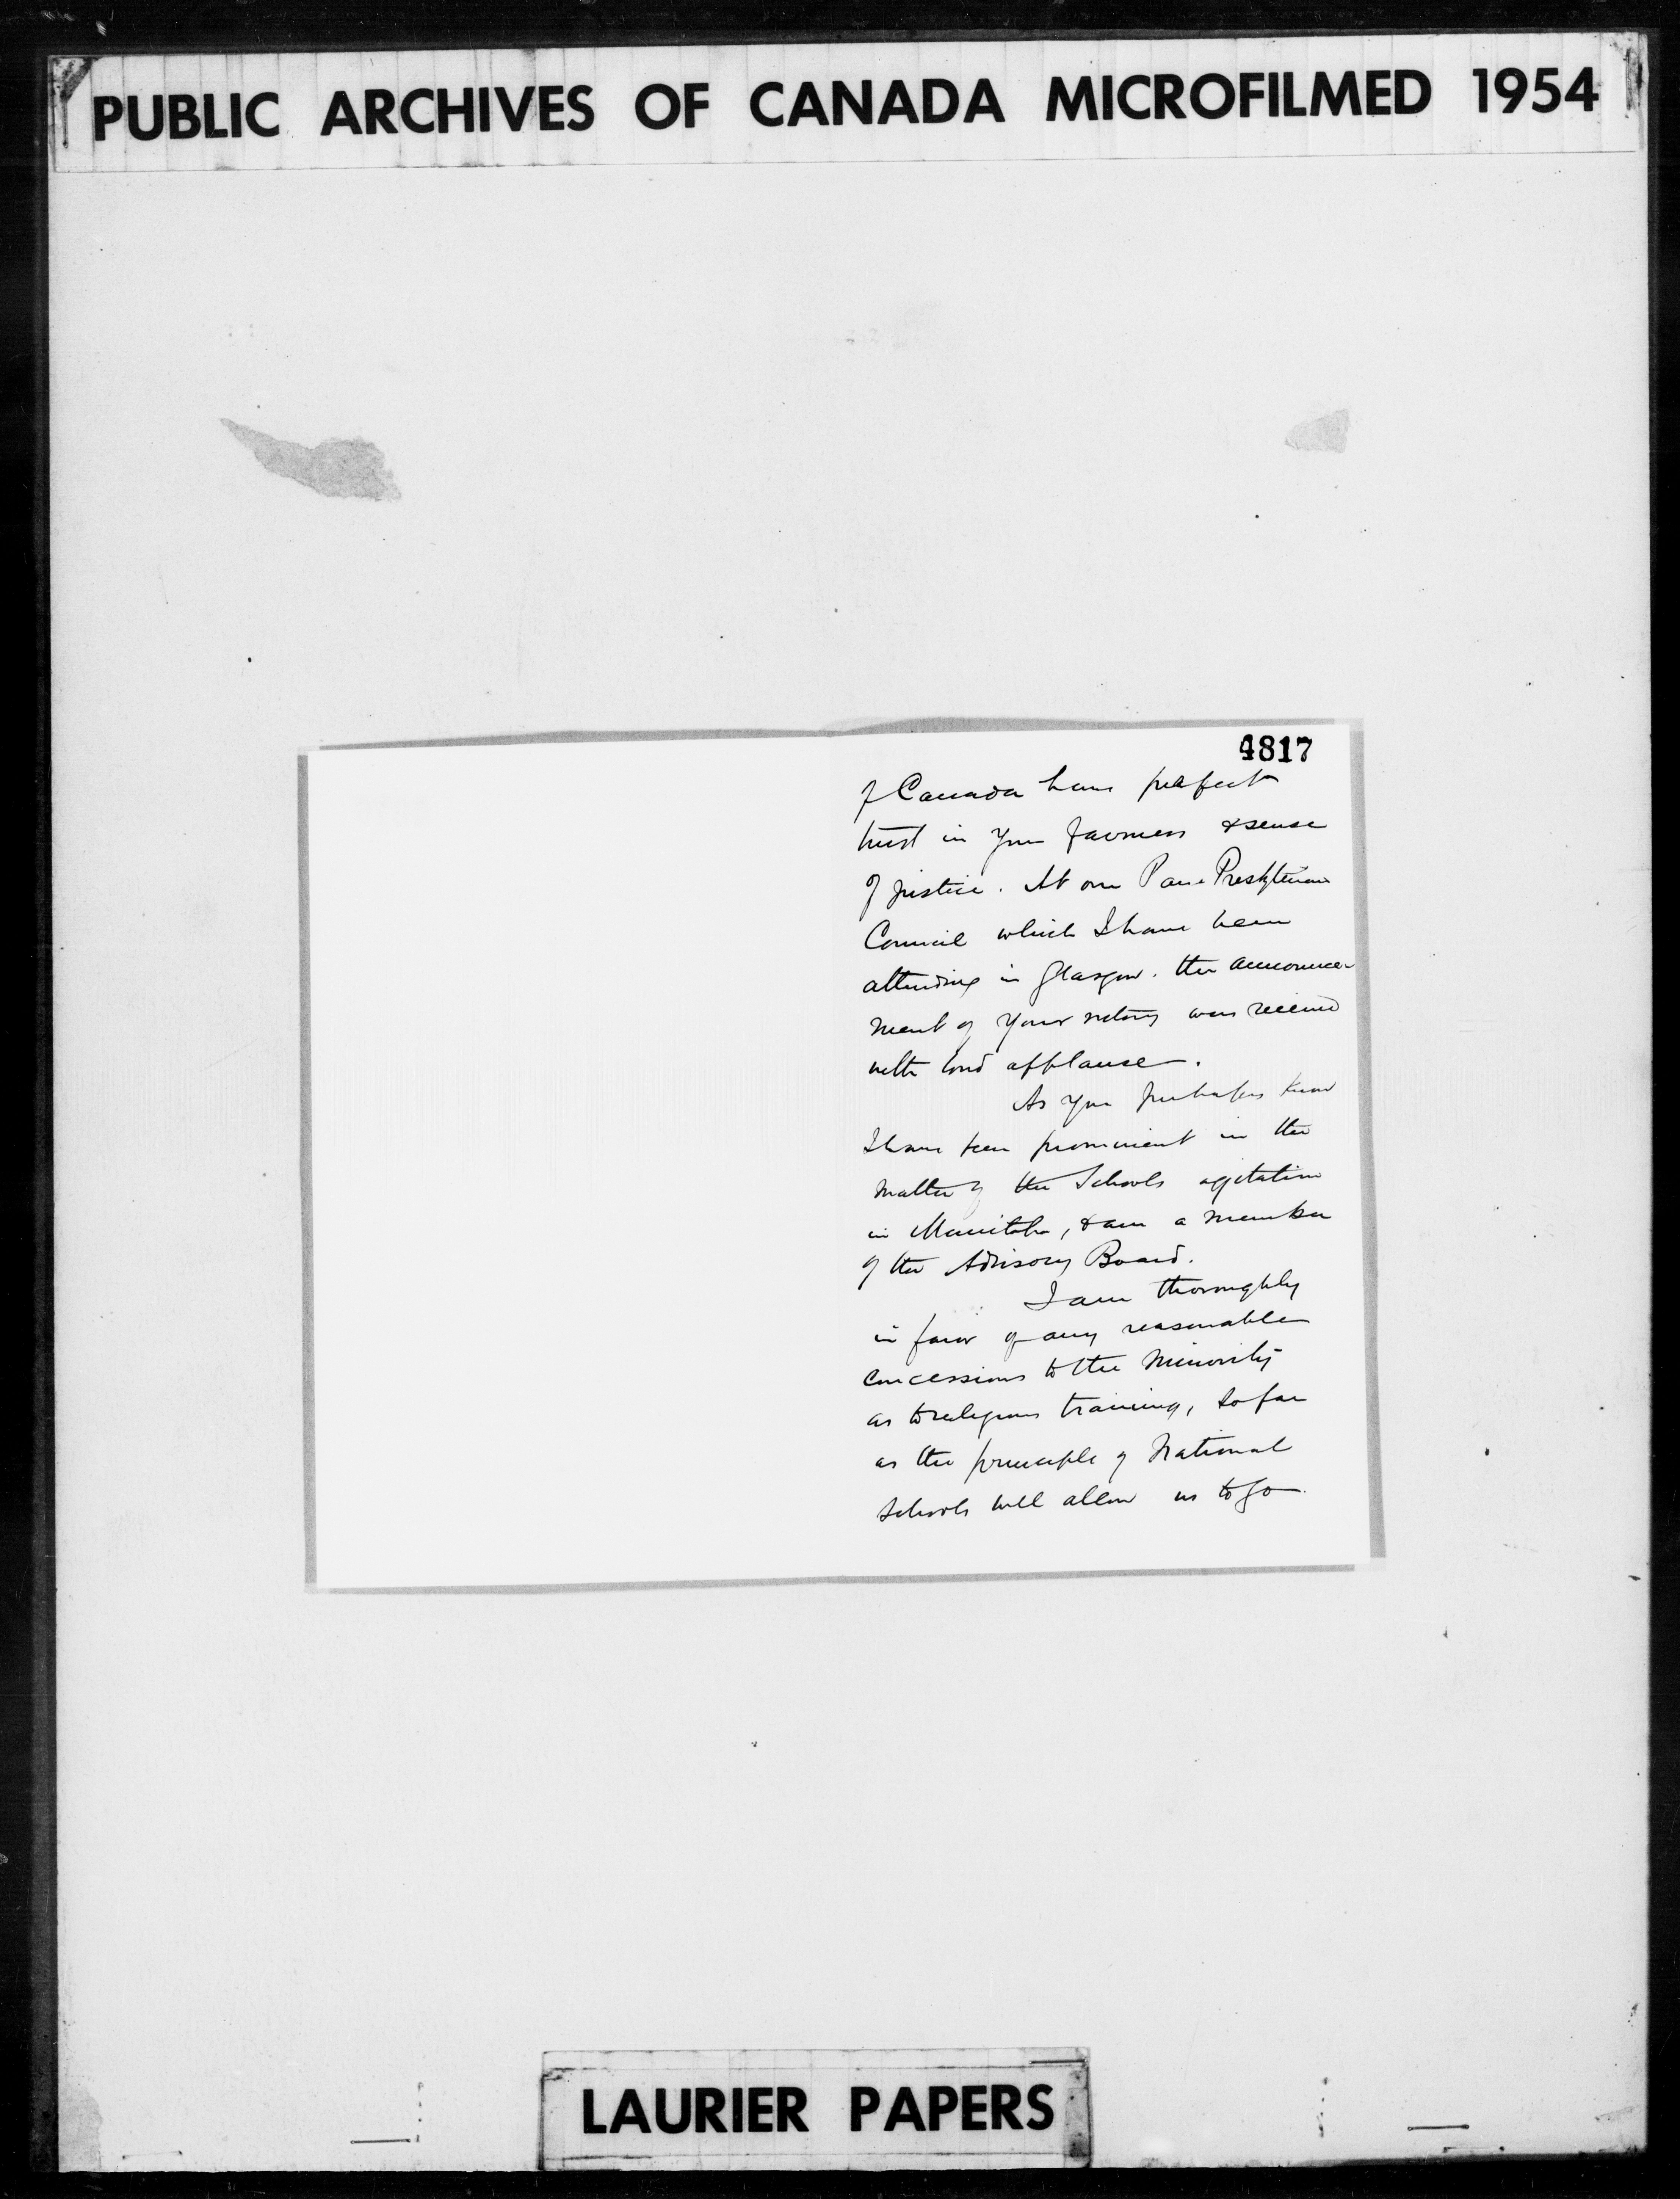 PUBLIC ARCHIVES OF CANADA MICROFILMED 1954
4817
of Canada have perfect
trust in your fairness & sense
of justice. At our Pan-Presbyterian
Council which I have been
attending in Glasgow. the announce-
ment of your victory was received
with loud applause.
As you perhaps know
I have been prominent in the
matter of the Schools agitation
in Manitoba, & am a member
of the Advisory Board.
I am thoroughly
in favor of any reasonable
concessions to the Minority
as to religious training, so far
as the principle of National
Schools will allow us to go.
LAURIER PAPERS